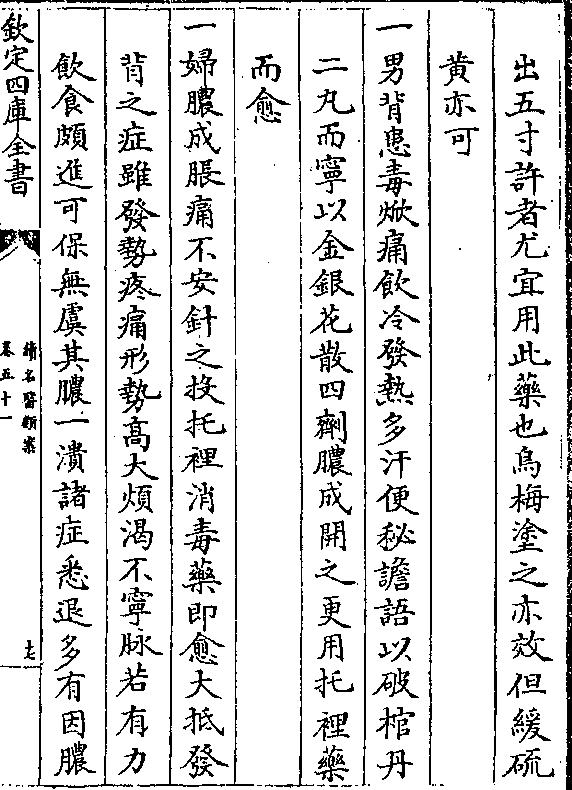 出五寸許者尤宜用此藥也烏梅塗之亦效但緩硫
黄亦可
一男背患毒焮痛飲冷發熱多汗便秘譫語以破棺丹
二丸而寧以金銀花散四劑膿成開之更用托裡藥
而愈
一婦膿成脹痛不安針之投托裡消毒藥即愈大抵發
背之症雖發勢疼痛形勢高大煩渴不寧脉若有力
飲食頗進可保無虞其膿一潰諸症悉退多有因膿
欽定四庫全書
續名醫類案
卷五十一
七